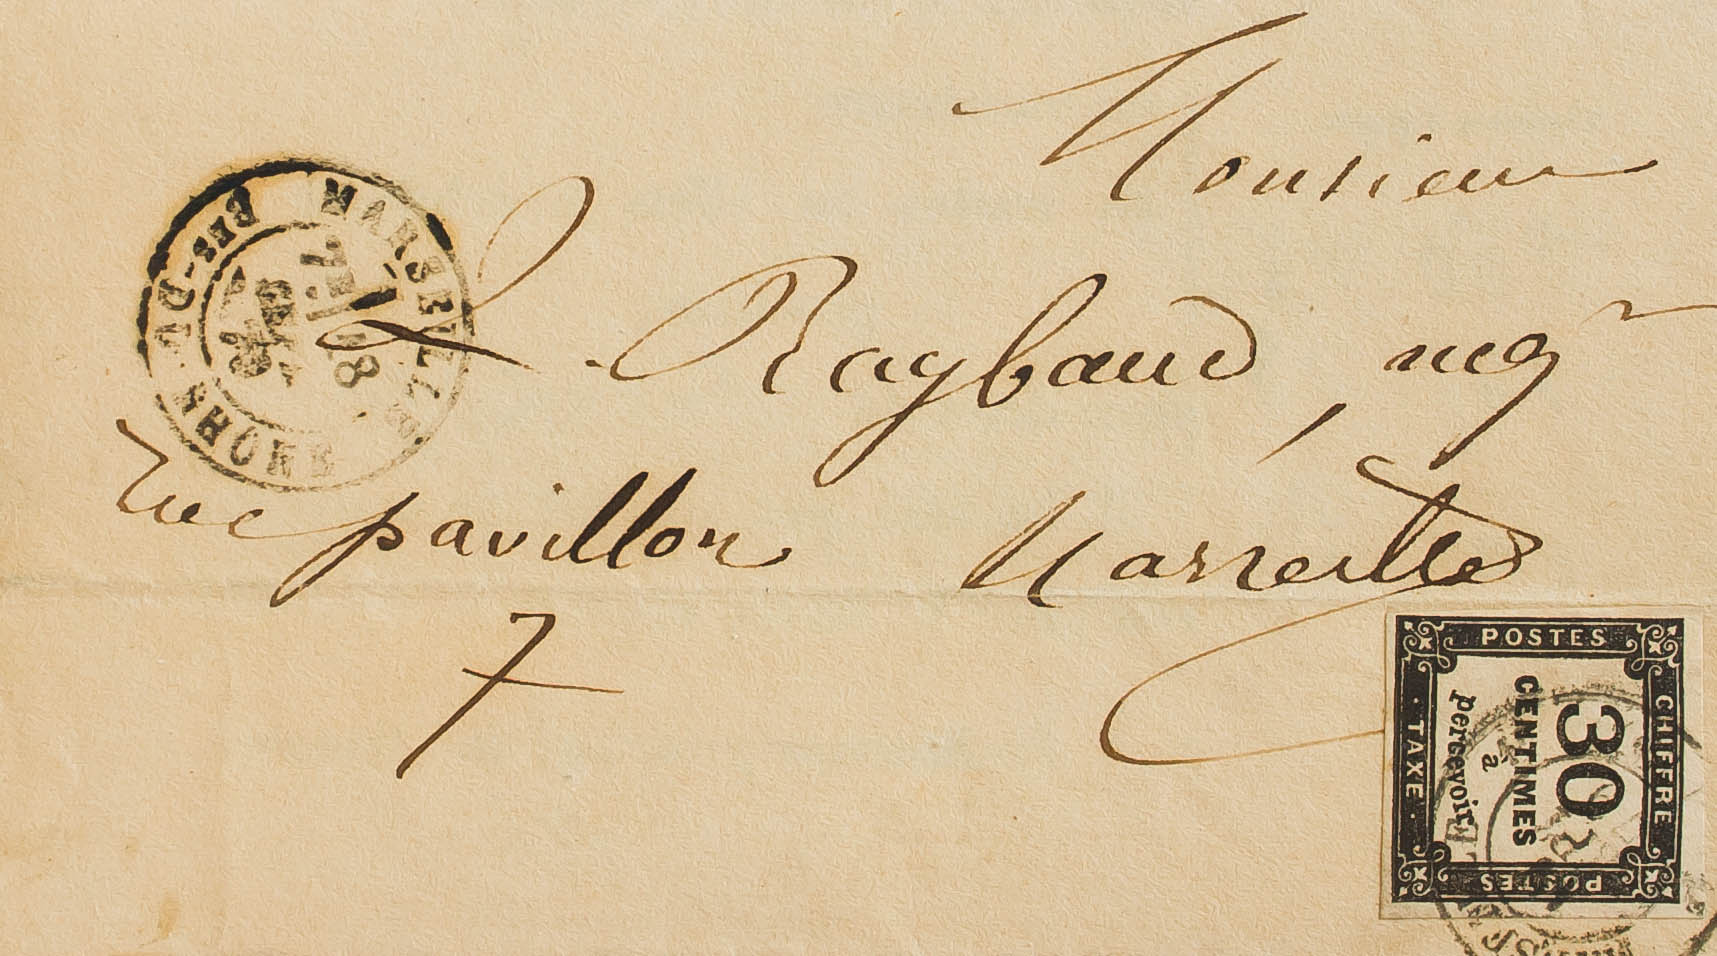 Monsieur
L. Raybaud, negr
Rue pavillon Marseille
7
MARSEILLE
BES-DU-RHONE
7E 18
POSTES
CHIFFRE
30
CENTIMES
à
percevoir
TAXE
POSTES